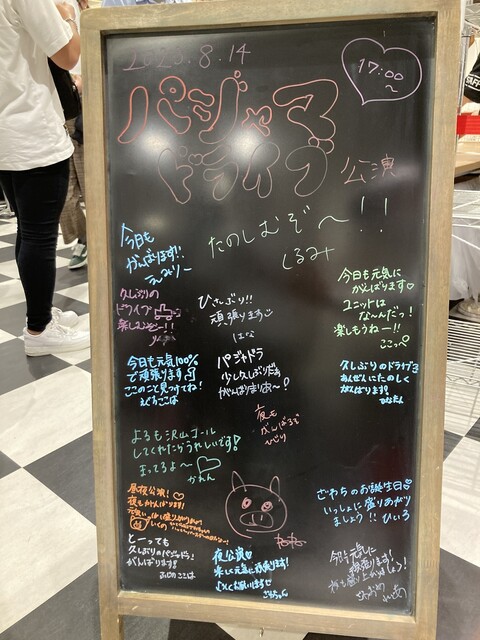 8.14
17:00
~
パジャマ
ドライブ
公演
たのしむぞ〜!!
くるみ
今日も
がんばります!!
えみりー
久しぶりの
ドライブ
楽しむぞー!!
ひさしぶり!!
頑張ります
はな
今日も元気に
がんばります♡
ユニットは
な〜んだっ!
楽しもうねー!!
ここっぺ
今日も元気100%
で頑張ります
ここのこと見つけてね!
パジャドラ
少し久しぶりだぁ
がんばりまりぉ〜!
久しぶりのドライブ
あんぜんにたのしく
がんばります!
ひなたん
夜も
がんばるぞ
びり
よるも沢山コール
してくれたらうれしいです!
まってるよ〜♡
かれん
昼夜公演!♡
夜もがんばります!
いくの
とーっても
久しぶりのパジャドラ!
がんばります!
夜公演♡
楽しく元気に頑張ります!
よろしくお願いします
さわちのお誕生日♡
いっしょに盛りあがり
ましょう!! ひいろ
今日も元気に
頑張ります!
夜も盛り上がりましょう!